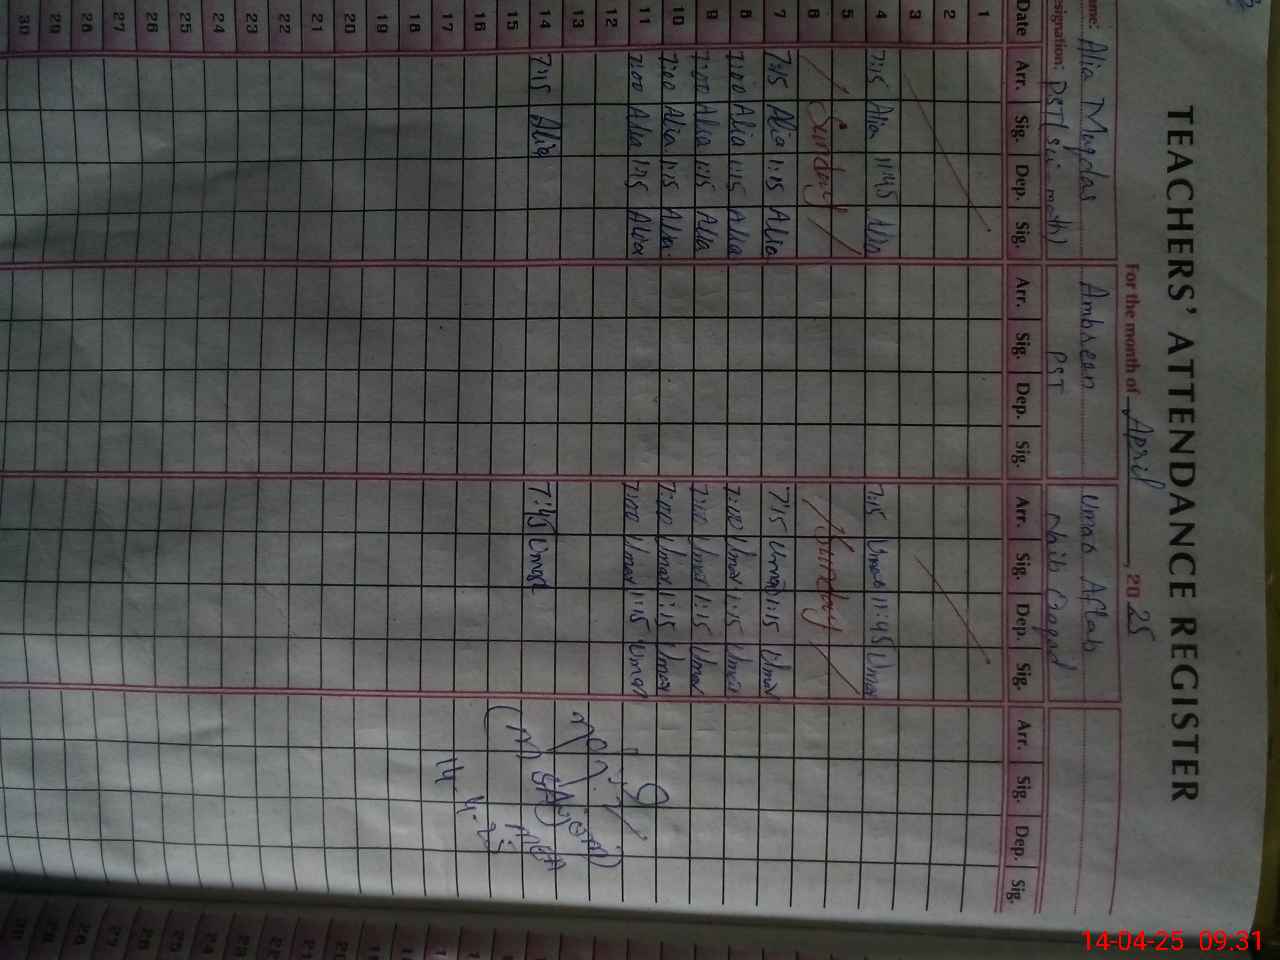 TEACHERS' ATTENDANCE REGISTER
For the month of April, 2025
ame: Alia Muqdas Ambreen Umar Aftab
esignation: PST (sci math) PST Naib Qasad
Date Arr. Sig. Dep. Sig. Arr. Sig. Dep. Sig. Arr. Sig. Dep. Sig. Arr. Sig. Dep. Sig.
1
2
3
4 7:15 Alia 11:45 Alia 7:15 Umar 11:45 Umar
5
6 Sunday Sunday
7 7:15 Alia 1:15 Alia 7:15 Umar 1:15 Umar
8 7:00 Alia 1:15 Alia 7:00 Umar 1:15 Umar
9 7:00 Alia 1:15 Alia 7:00 Umar 1:15 Umar
10 7:00 Alia 1:15 Alia 7:00 Umar 1:15 Umar
11 7:00 Alia 1:15 Alia 7:00 Umar 1:15 Umar
12
13
14 7:15 Alia 7:45 Umar
15
16
17
18
19
20
21
22
23
24
25
26
27
28
29
30
MEA
14-4-25
14-04-25 09:31